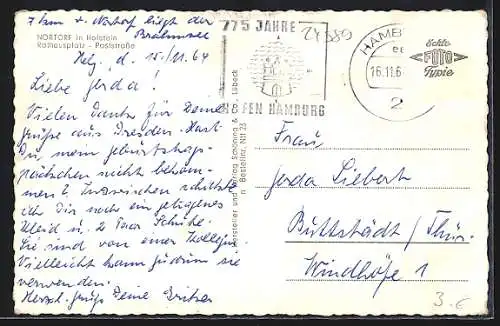 7 km v. Nortorf liegt der
Brahmsee
NORTORF in Holstein
Rathausplatz - Poststraße
d. 15/11. 64
Liebe Gerda!
Vielen Dank für Deine
Grüße aus Dresden. Hast
Du mein Geburtstags-
päckchen nicht bekom-
men? Inzwischen schickte
ich Dir noch ein getragenes
Kleid u. 2 Paar Schuhe.
Sie sind von einer Kollegin.
Vielleicht kann Gudrun sie
verwenden.
Herzl. Grüße Deine
Hersteller und Verlag Schöning & Co., Lübeck
Bestellnr. Ntf 23
775 JAHRE
HAFEN HAMBURG
24389
HAMBURG
16.11.6
2
Echte
FOTO
Typie
Frau
Gerda Siebert
Buttstädt / Thür.
Windhöfe 1
3.-€